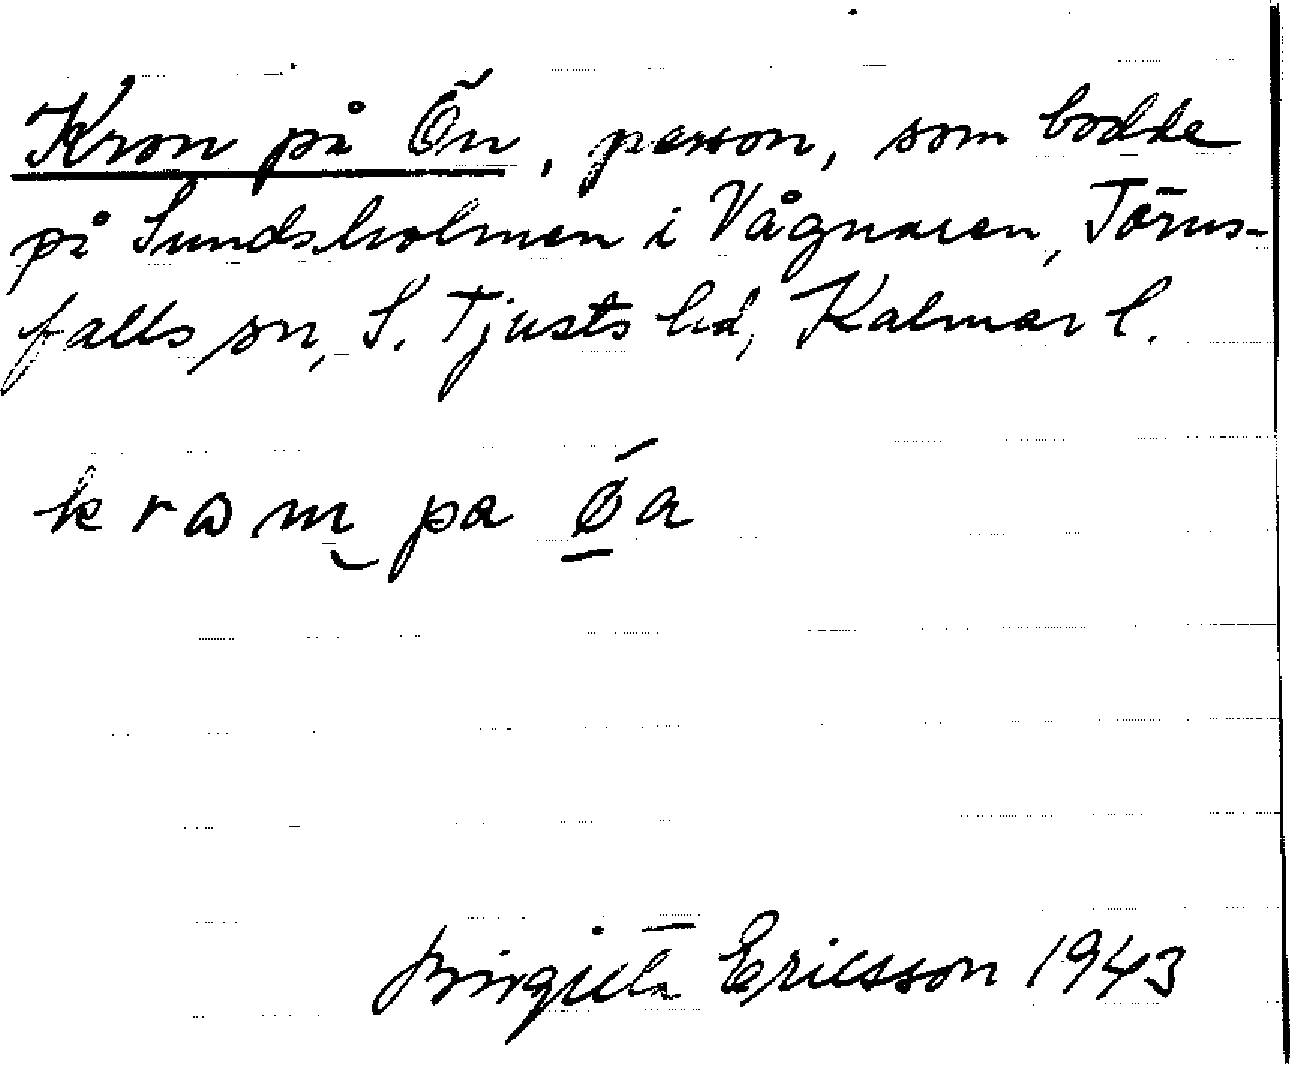 Kron på Ön, person, som bodde
på Sundsholmen i Vågnaren, Törns-
falls sn, S. Tjusts hd, Kalmar l.
pa
Birgitta Ericsson 1943